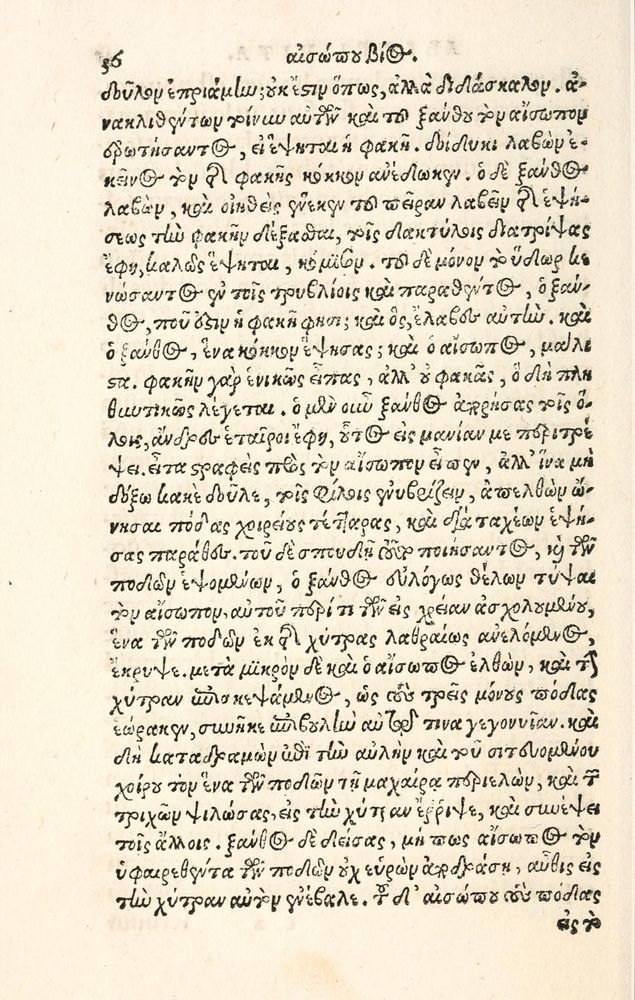 36 αἰσώπου βίος.
δοῦλον ἐπριάμην; οὐκ ἔστιν ὅπως, ἀλλὰ διδάσκαλον. ἀ-
νακλιθέντων τοίνυν αὐτῶν καὶ τοῦ ξάνθου τὸν αἴσωπον
ἐρωτήσαντος, εἰ ἕψηται ἡ φακῆ. δοίδυκι λαβὼν ἐ-
κεῖνος τὸν τῆς φακῆς κόκκον ἀνέδωκεν. ὁ δὲ ξάνθος
λαβὼν, καὶ οἰηθεὶς ἕνεκεν τοῦ πεῖραν λαβεῖν τῆς ἑψή-
σεως τὴν φακῆν δέξασθαι, τοῖς δακτύλοις διατρίψας
ἔφη, καλῶς ἕψηται, κόμισον. τοῦ δὲ μόνον τὸ ὕδωρ κε
νώσαντος ἐν τοῖς τρυβλίοις καὶ παραθέντος, ὁ ξάν-
θος, ποῦ ἐστιν ἡ φακῆ φησι; καὶ ὃς, ἔλαβες αὐτήν. καὶ
ὁ ξάνθος, ἕνα κόκκον ἕψησας; καὶ ὁ αἴσωπος, μάλι
στα. φακῆν γὰρ ἑνικῶς εἶπας, ἀλλ' οὐ φακᾶς, ὃ δὴ πλη
θυντικῶς λέγεται. ὁ μὲν οὖν ξάνθος ἀπορήσας τοῖς ὅ-
λοις, ἄνδρες ἑταῖροι ἔφη, οὗτος εἰς μανίαν με περιτρέ
ψει. εἶτα στραφεὶς πρὸς τὸν αἴσωπον εἶπεν, ἀλλ' ἵνα μὴ
δόξω κακὲ δοῦλε, τοῖς φίλοις ἐνυβρίζειν, ἀπελθὼν ὤ-
νησαι πόδας χοιρείους τέτταρας, καὶ διὰ ταχέων ἑψή-
σας παράθες. τοῦ δὲ σπουδῇ τοῦτο ποιήσαντος, καὶ τῶν
ποδῶν ἑψομένων, ὁ ξάνθος εὐλόγως θέλων τύψαι
τὸν αἴσωπον, αὐτοῦ περί τι τῶν εἰς χρείαν ἀσχολουμένου,
ἕνα τῶν ποδῶν ἐκ τῆς χύτρας λαθραίως ἀνελόμενος,
ἔκρυψε. μετὰ μικρὸν δὲ καὶ ὁ αἴσωπος ἐλθὼν, καὶ τὴν
χύτραν ἐπισκεψάμενος, ὡς τοὺς τρεῖς μόνους πόδας
ἑώρακεν, συνῆκε ἐπιβουλὴν αὐτῷ τινα γεγονυῖαν. καὶ
δὴ καταδραμὼν ἐπὶ τὴν αὐλὴν καὶ τοῦ σιτευομένου
χοίρου τὸν ἕνα τῶν ποδῶν τῇ μαχαίρᾳ περιελὼν, καὶ τῶν
τριχῶν ψιλώσας, εἰς τὴν χύτραν ἔρριψε, καὶ συνέψει
τοῖς ἄλλοις. ξάνθος δὲ δείσας, μή πως αἴσωπος τὸν
ὑφαιρεθέντα τῶν ποδῶν οὐχ εὑρὼν ἀποδράσῃ, αὖθις εἰς
τὴν χύτραν αὐτὸν ἐνέβαλε. τοῦ δ' αἰσώπου τοὺς πόδας
εἰς τὸ